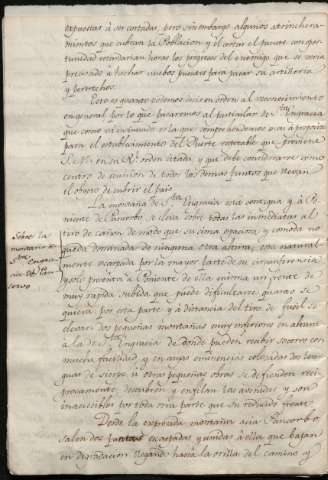 expuestas à ser cortadas, pero sin embargo algunos atrinchera-
mientos que cubran la Poblacion y el cortar el puente con opor-
tunidad retardarian horas los progresos del enemigo que se veria
precisado a hechar nuebos puentes para pasar su artilleria
y pertrechos.
Esto es quanto podemos decir en orden al reconocimiento
en general por lo que pasaremos al particular de Sta. Engracia
que como va insinuado es la que comprehendemos mas à proposito
para el establecimiento del Fuerte respetable que previene
S. M. en su Rl. orden citada, y que debe considerarse como
centro de union de todos los demas puntos que llevan
el objeto de cubrir el pais.
Sobre la
montaña de
Sta. Engra-
cia de Pan-
corvo
La montaña de Sta. Engracia esta contigua y à P-
niente de Pancorbo, se eleva sobre todas las inmediatas al
tiro de cañon de modo que su cima espaciosa y comoda no
queda dominada de ninguna otra altura, esta natural-
mente escarpada por la mayor parte de su circunferencia
y solo presenta à Poniente de ella misma un frente de
muy rapida subida que puede dificultarse quanto se
quiera por esta parte y à distancia del tiro de fusil se
elevan dos pequeñas montañas muy inferiores en altura
a la de Sta. Engracia de donde pueden recibir socorro con
mucha facilidad, y en cuyas eminencias colocadas dos len-
guas de sierpe ù otras pequeñas obras se defienden reci-
procamente, descubren y enfilan las avenidas y son
inaccesibles por toda otra parte que su reducido frente.
Desde la expresada montaña acia Pancorbo
salen dos puntas escarpadas y unidas à ella que bajan
en degradacion llegando hasta la orilla del camino y